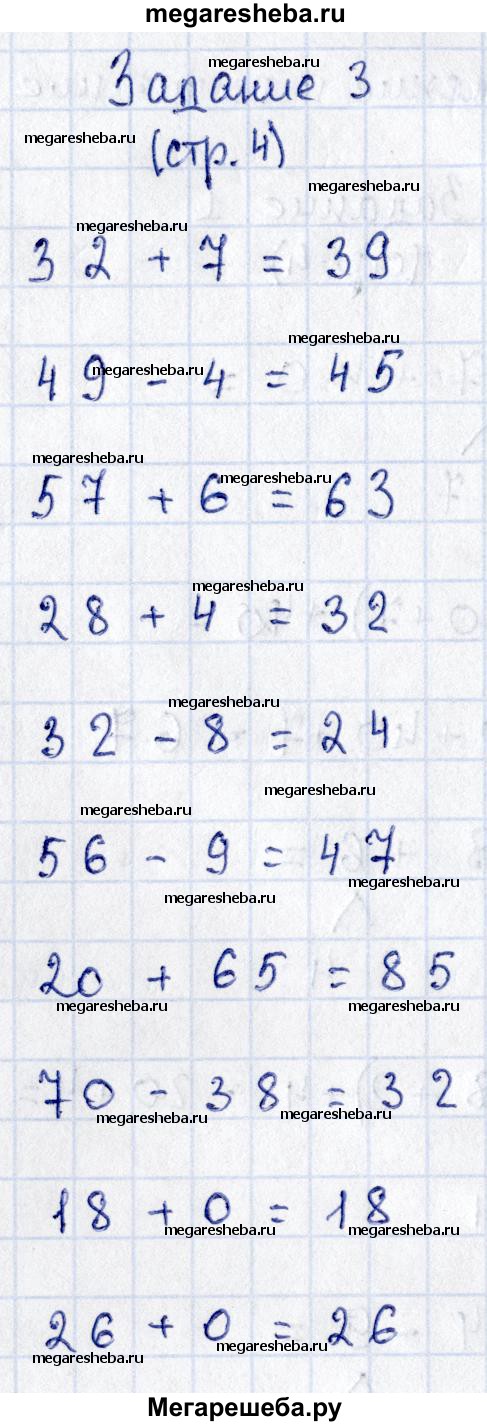 megaresheba.ru
megaresheba.ru
Задание 3
megaresheba.ru
(стр. 4)
megaresheba.ru
megaresheba.ru
32 + 7 = 39
megaresheba.ru
49 - 4 = 45
megaresheba.ru
megaresheba.ru
megaresheba.ru
57 + 6 = 63
megaresheba.ru
28 + 4 = 32
megaresheba.ru
32 - 8 = 24
megaresheba.ru
megaresheba.ru
56 - 9 = 47
megaresheba.ru
megaresheba.ru
20 + 65 = 85
megaresheba.ru megaresheba.ru
70 - 38 = 32
megaresheba.ru megaresheba.ru
18 + 0 = 18
megaresheba.ru megaresheba.ru
26 + 0 = 26
megaresheba.ru megaresheba.ru
Мегарешеба.ру